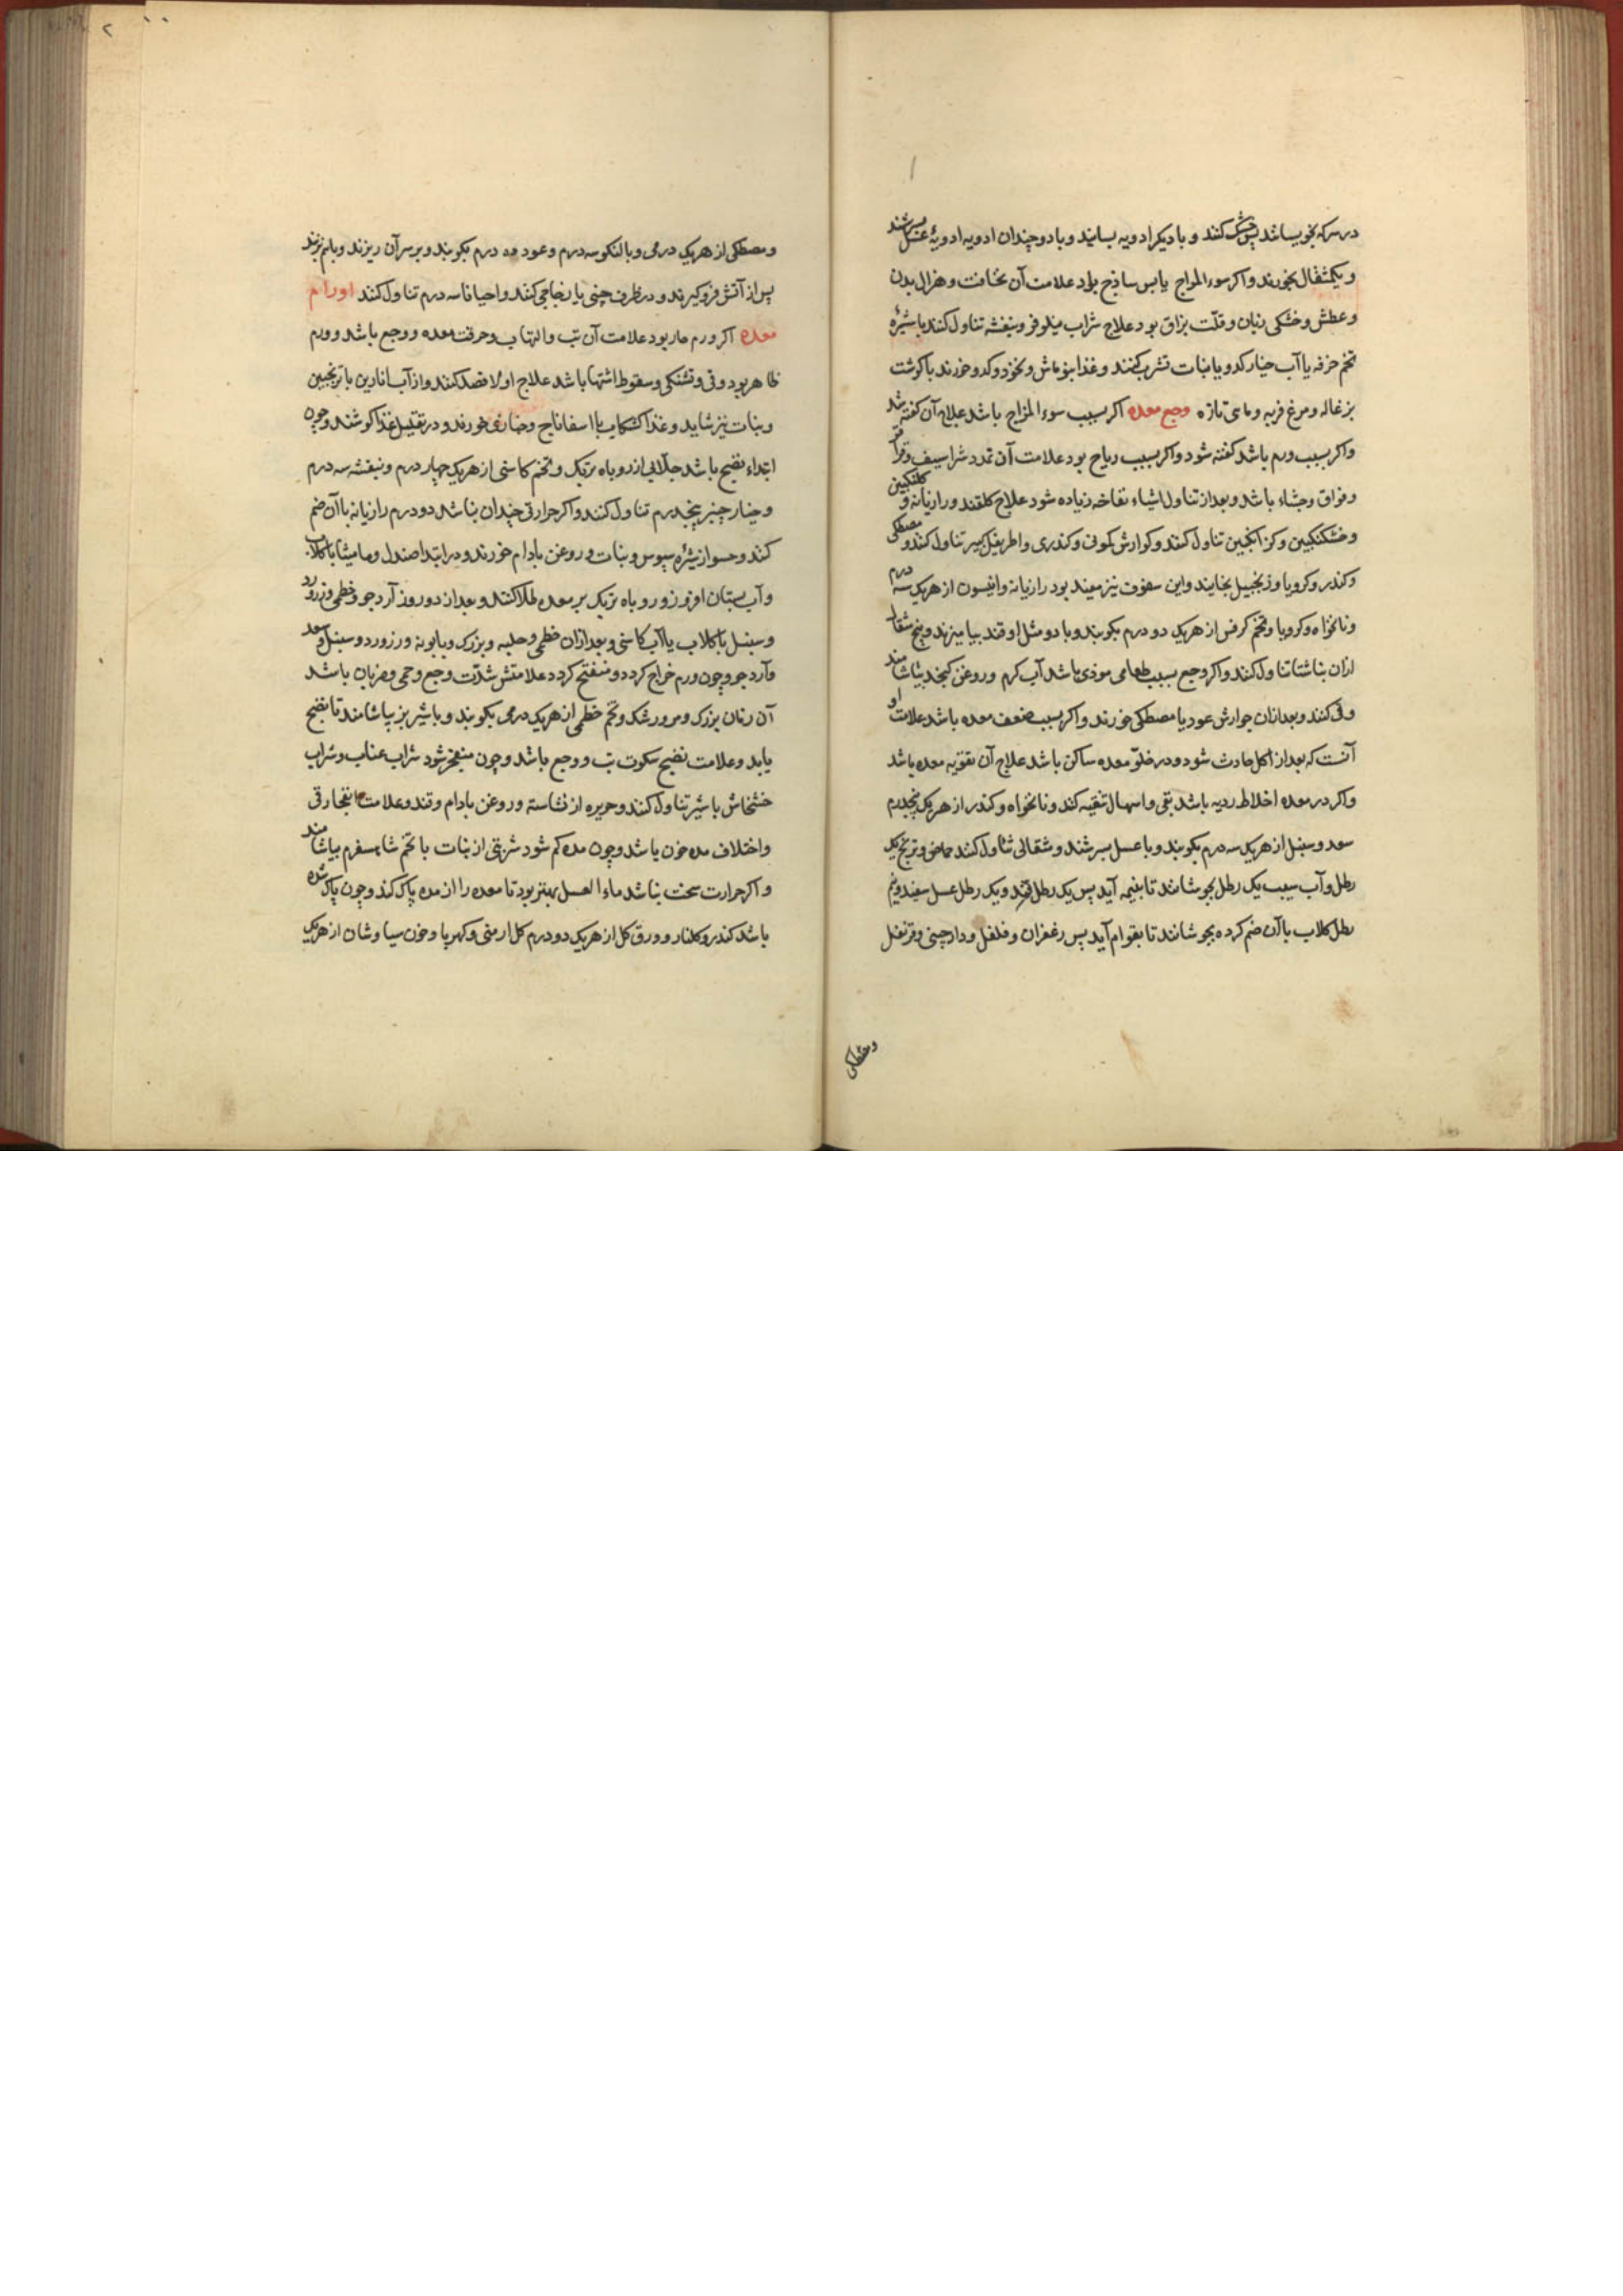 در سرکه بخویسانند پس خشک کنند و با دیکر ادویه بسایند و با دو چندان ادویه ادویهٔ عسل بسرشند
و یکمثقال بخورند و اکر سوء المزاج یابس ساذج بود علامت آن نخافت و هزال بدن
و عطش و خشکی زبان و قلّت بزاق بود علاج شراب نیلوفر و بنفشه تناول کنند با شیرهٔ
تخم خرفه یا آب خیار کدو یا بنات تشرب کنند و غذا بنوماش و نخود و کدو خورند با کوشت
بزغاله و مرغ فربه و ماهی تازه وجع معده اکر بسبب سوء المزاج باشد علاج آن کفته شد
و اکر بسبب ورم باشد کفته شود و اکر بسبب ریاح بود علامت آن تمدد شراسیف و قراقر
و فواق و جشاء باشد و بعد از تناول اشیاء نفاخه زیاده شود علاج کلقند و رازیانه و کلنکبین
و خشکنکبین و کزانکبین تناول کنند و کوارش کمونی و کندری و اطریفل کبیر تناول کنند و مصطکی
و کندر و کرویا و زنجبیل بخایند و این سفوف نیز مفید بود رازیانه و انیسون از هریک سه درم
و نانخواه و کرویا و تخم کرفس از هریک دو درم بکوبند و با دو مثل او قند بیامیزند و پنج مثقال
ازان بناشتا تناول کنند و اکر وجع بسبب طعامی موذی باشد آب کرم و روغن کنجد بیاشامند
و قی کنند و بعد ازان جوارش عود یا مصطکی خورند و اکر بسبب ضعف معده باشد علامت او
آنست که بعد از اکل حادث شود و در خلوّ معده ساکن باشد علاج آن تقویه معده باشد
و اکر در معده اخلاط ردیه باشد بقی و اسهال تنقیه کند و نانخواه و کندر از هریک پنجدرم
سعد و سنبل از هریک سه درم بکوبند و با عسل بسرشند و مثقالی تناول کنند حماض و ترنج یک
رطل و آب سیب یک رطل بجوشانند تا بنیمه آید پس یک رطل قند و یک رطل عسل سفید و نیم
رطل کلاب با آن ضم کرده بجوشانند تا بقوام آید پس زعفران و فلفل و دارچینی و قرنفل
و مصطکی
و مصطکی از هریک درمی و بالنکو سه درم و عود ده درم بکوبند و بر سر آن ریزند و باهم بزنند
پس از آتش فروکیرند و در ظرف چینی یا زجاجی کنند و احیانا سه درم تناول کنند اورام
معده اکر ورم حار بود علامت آن تب و التهاب و حرقت معده و وجع باشد و ورم
ظاهر بود و قی و تشنکی و سقوط اشتها باشد علاج اولا فصد کنند و از آب انارین با ترنجبین
و بنات نیز شاید و غذا کشکاب با اسفاناج و خبازی خورند و در تقلیل غذا کوشند و چون
ابتداء نضج باشد جلّابی از روباه تربک و تخم کاسنی از هریک چهار درم و بنفشه سه درم
و خیار چنبر پنجدرم تناول کنند و اکر حرارتی چندان نباشد دو درم رازیانه با آن ضم
کنند و حسو از شیرهٔ سپوس و بنات و روغن بادام خورند و در ابتدا صندل و مامیثا با کلاب
و آب بستان افروز و روباه تربک بر معده طلا کنند و بعد از دو روز آرد جو و خطمی و زرورد
و سنبل با کلاب یا آب کاسنی و بعد ازان خطمی و حلبه و بزرک و بابونه و زرورد و سنبل و سعد
و آرد جو و چون ورم خراج کردد و منفتح کردد علامتش شدّت وجع و حمی و ضربان باشد
آن زمان بزرک و مرورشک و تخم خطمی از هریک درمی بکوبند و با شیر بز بیاشامند تا نضج
یابد و علامت نضج سکوت تب و وجع باشد و چون منفجر شود شراب عناب و شراب
خشخاش با شیر تناول کنند و حریره از نشاسته و روغن بادام و قند و علامت انفجار قی
و اختلاف مده خون باشد و چون مده کم شود شربتی از بنات با تخم شاهسفرم بیاشامند
و اکر حرارت سخت نباشد ماء العسل بهتر بود تا معده را از مده پاک کند و چون پاک شده
باشد کندر و کلنار و ورق کل از هریک دو درم کل ارمنی و کهربا و خون سیاوشان از هریک